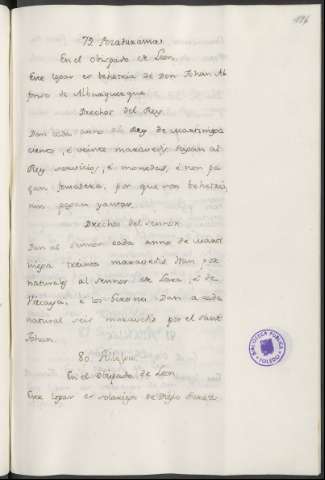 186
79
En el Obispado de Leon.
Este logar es behetria de Don Johan Al
fonso de Alburquerque
Drechos del Rey.
Dan cada anno al Rey de martiniega
ciento, é veinte maravedis, é pagan al
Rey servicios, é monedas, é non pa
gan fonsadera, por que son behetria,
nin pagan yantar.
Drechos del sennor.
Dan al sennor cada anno de Marti
niega treinta maravedis. Han por
naturales al sennor de Lara, é de
Vizcaya, é los Girones. Dan a cada
natural seis maravedis por el Sant
Johan.
80
En el Obispado de Leon.
Este logar es solariego de
BIBLIOTECA PÚBLICA
TOLEDO